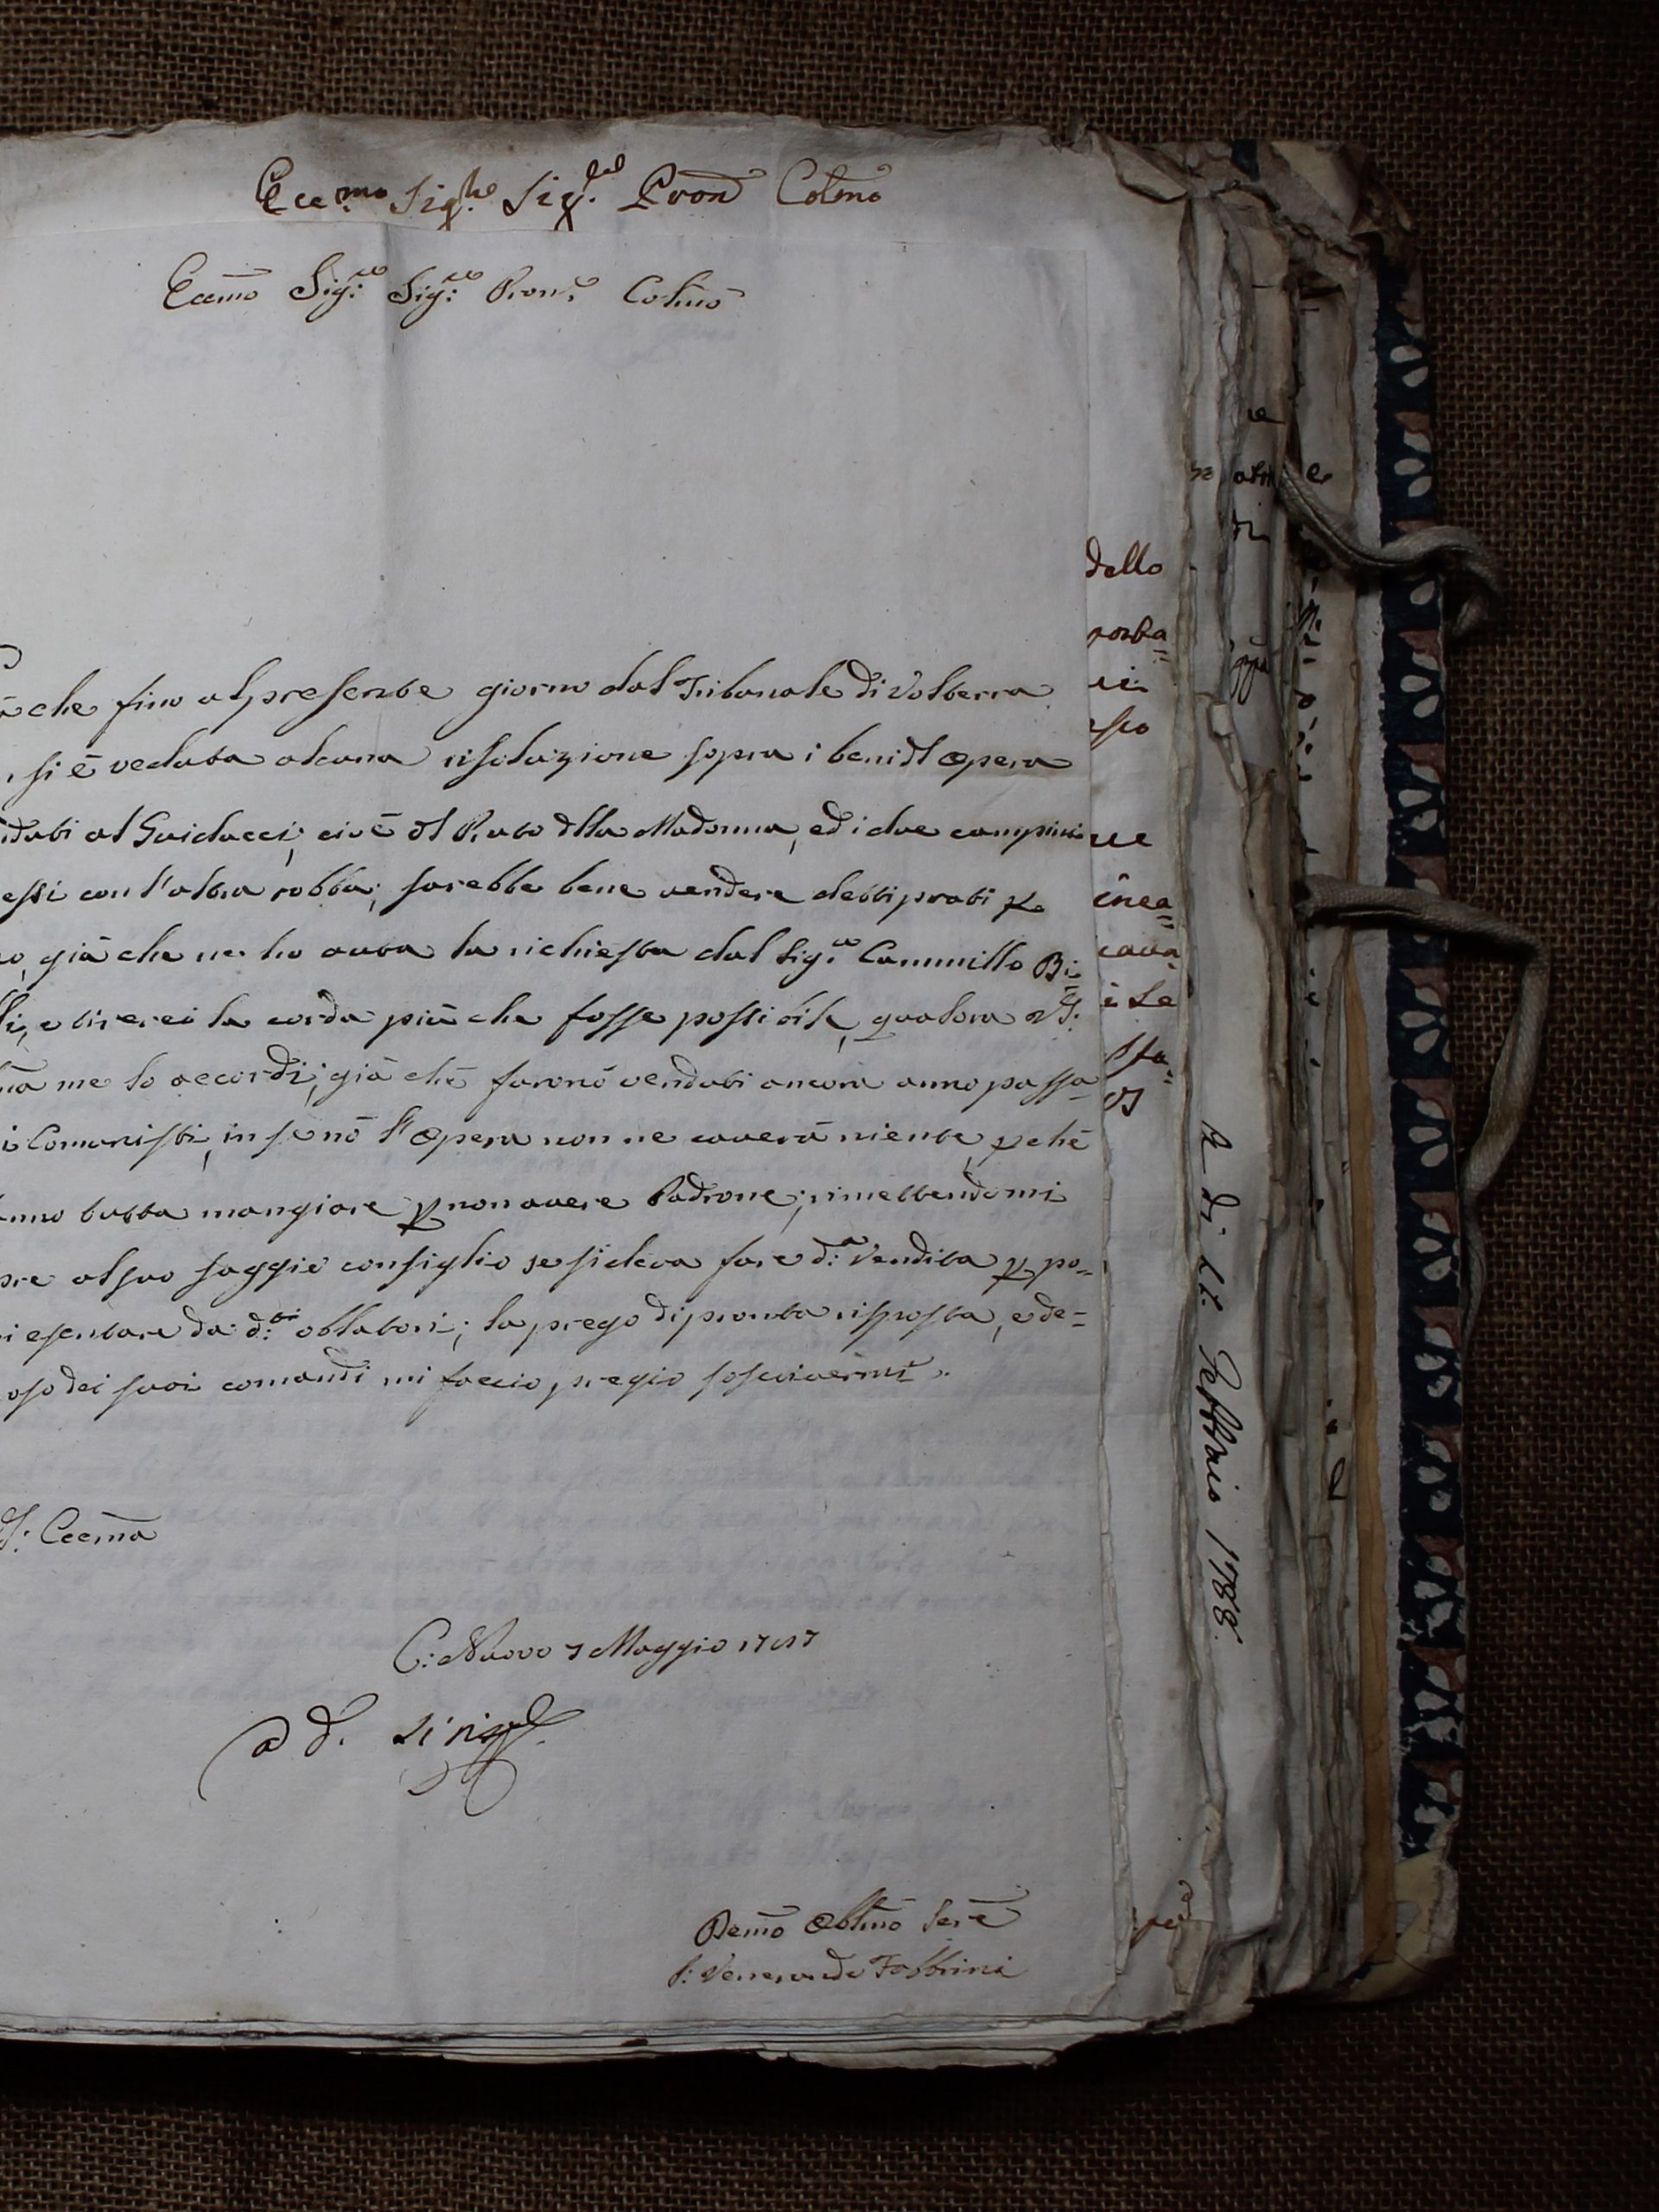 Ecc.mo Sig.re Sig.re Pron Colmo
Eccmo Sig:re Sig:re Pron.e Colmo
che fino al presente giorno dal Tribunale di Volterra
si è veduta alcuna risoluzione sopra i beni dl Opera
duti al Guiducci, cioè dl Prato dlla Madonna, ed i due campini
essi con l'altra robba; sarebbe bene vendere detti prati
già che ne ho auta la richiesta dal Sig.re Cammillo Bi=
li, e tirerei la corda più che fosse possibile, qualora VS:
ma me lo accordi; già chè furonò venduti ancora anno passa=
i Comunisti, in se nò l'Opera non ne caverà niente, pchè
anno tutta mangiare p non avere Padrone; rimettendomi
pre al suo saggio consiglio se si deva fare d:a Vendita p po=
i esentare da d:ti oblatori; la prego di pronta risposta, e de=
oso dei suoi comandi mi faccio pregio soscrivermi.
S: Eccma
C: Nuovo 7 Maggio 1787
Demo Oblmo Sere
P: Venerando Fabbrini
dello
porta=
ue
inca=
cava
i le
A dì 21. Febbraio 1788.